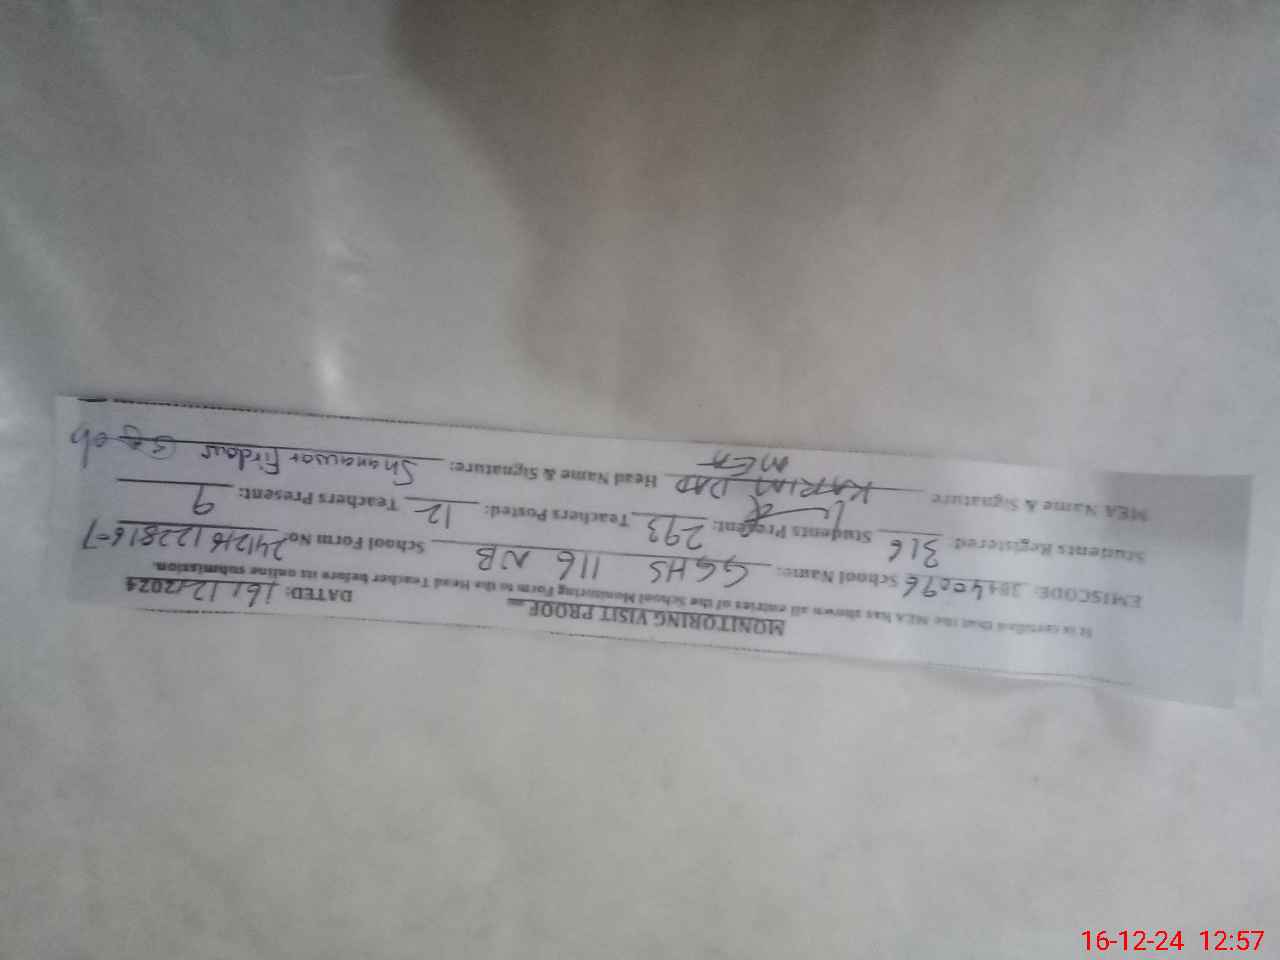 MONITORING VISIT PROOF
DATED: 16/12/2024
It is certified that the MEA has shown all entries of the School Monitoring Form to the Head Teacher before its online submission.
EMISCODE: 38440096 School Name: GGHS 116 NB School Form No 241216122816-7
Students Registered: 316 Students Present: 293 Teachers Posted: 12 Teachers Present: 9
MEA Name & Signature KARIM DAD Head Name & Signature: Shanawar Firdous
MEA
16-12-24 12:57